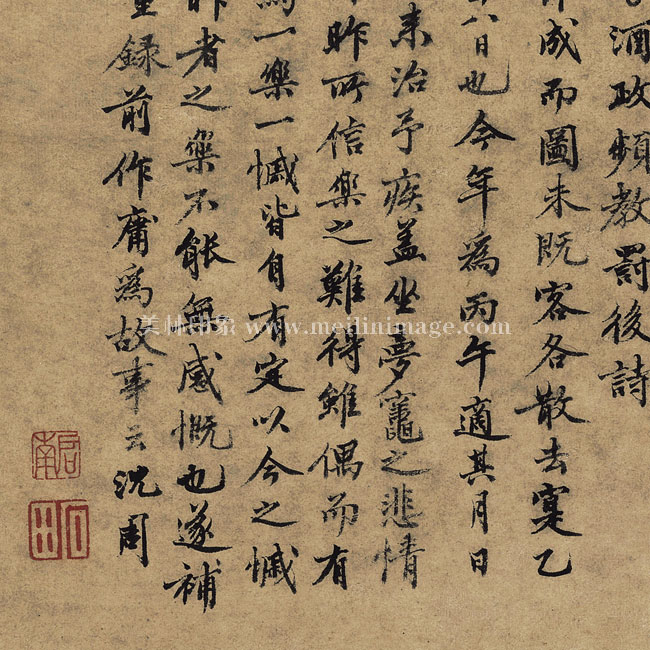 酒政頻教罰後詩
成而圖未既客各散去寔乙
八日也今年為丙午適其月日
未治予疾蓋坐夢竈之悲情
昨所信樂之難待雖偶而有
一樂一慽皆自有定以今之慽
昨者之樂不能無感慨也遂補
錄前作庸爲故事云沈周
美林印象 www.meilinimage.com